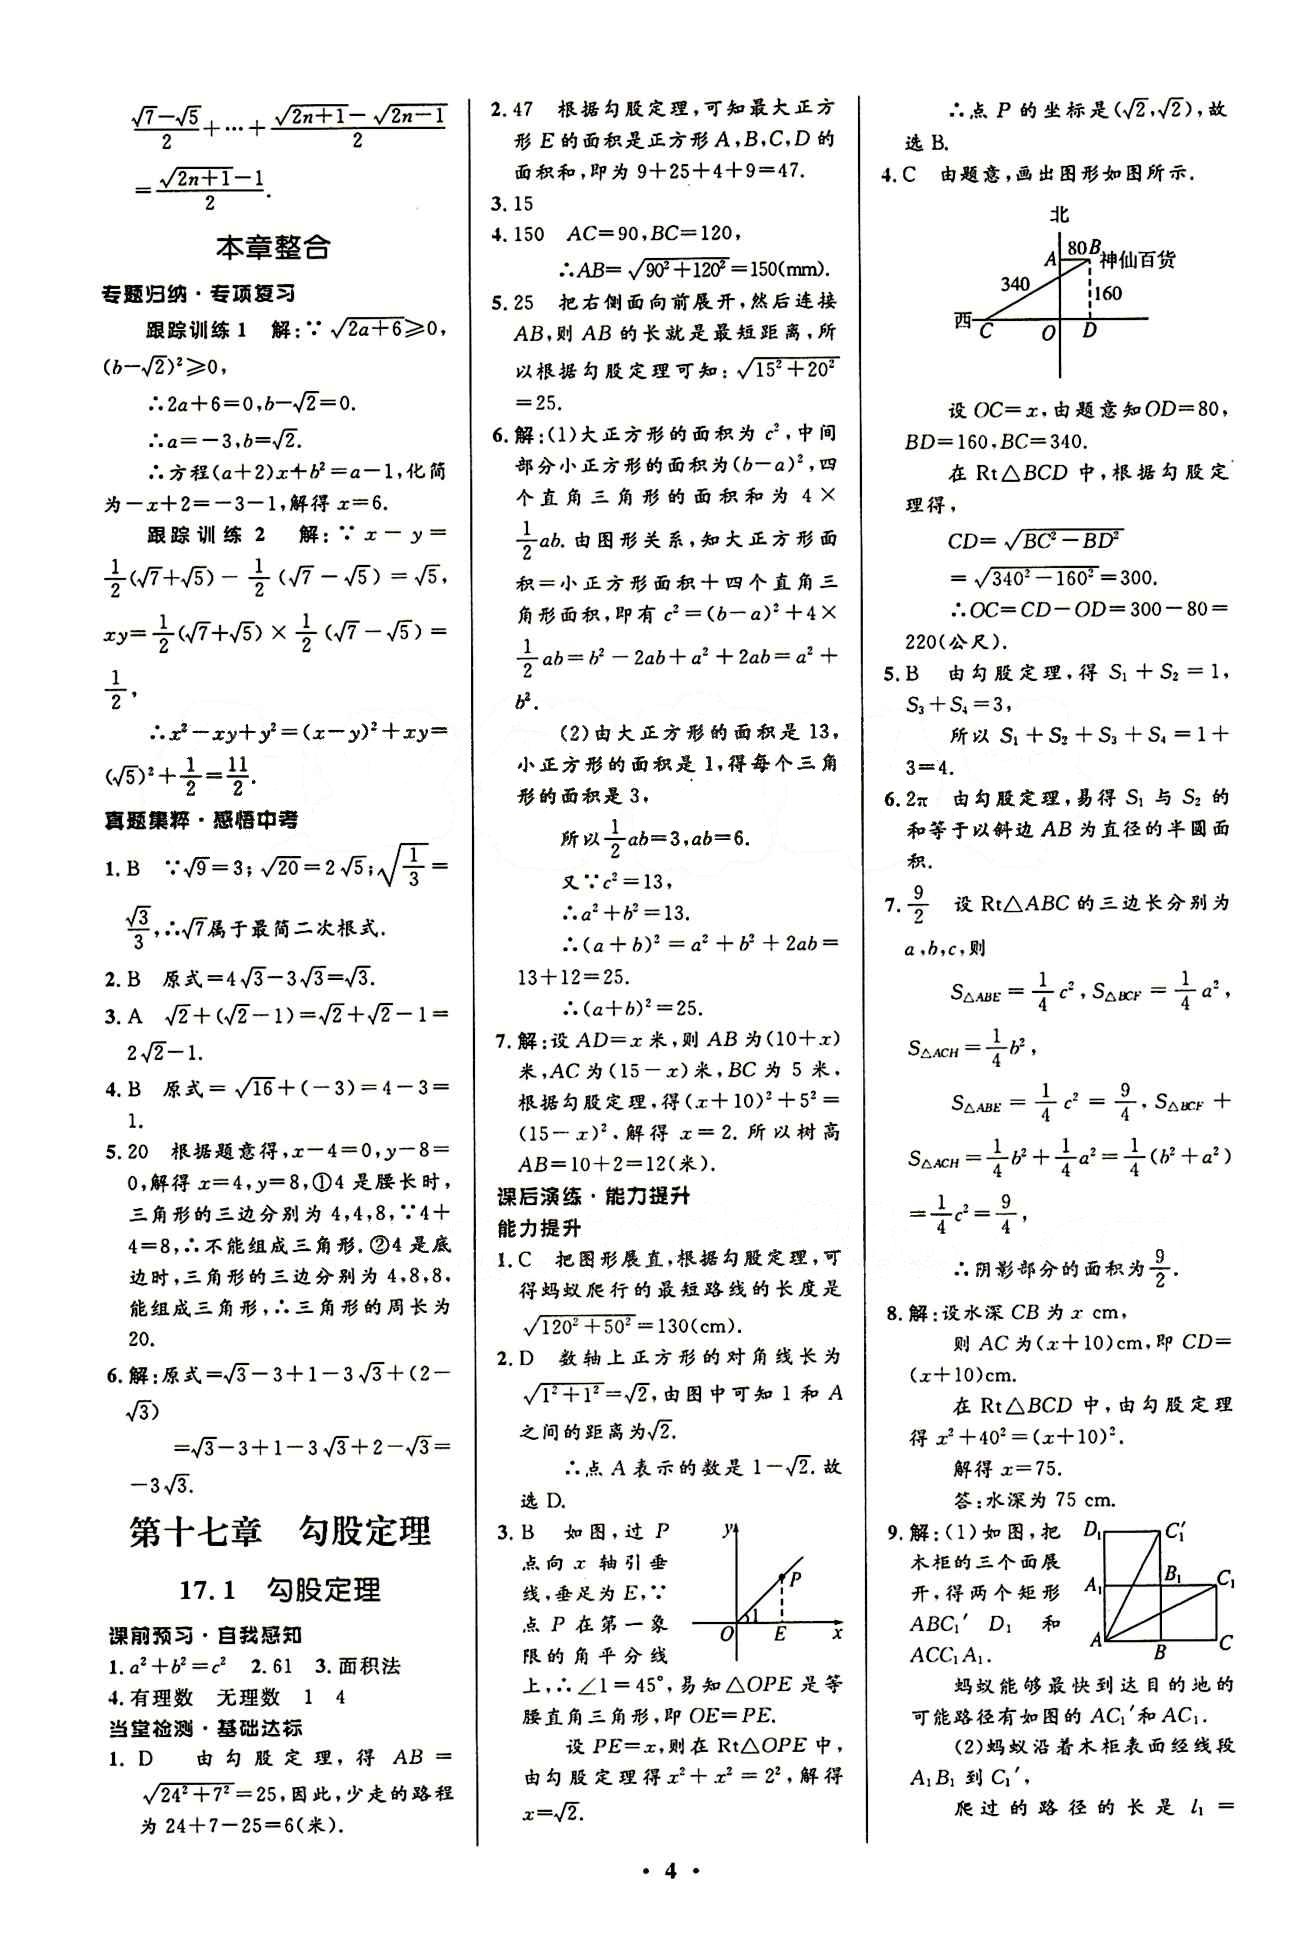 (√7−√5)/2+…+(√(2n+1)−√(2n−1))/2
=(√(2n+1)−1)/2.
本章整合
专题归纳·专项复习
跟踪训练1 解:∵√(2a+6)≥0,
(b−√2)²≥0,
∴2a+6=0,b−√2=0.
∴a=−3,b=√2.
∴方程(a+2)x+b²=a−1,化简
为−x+2=−3−1,解得x=6.
跟踪训练2 解:∵x−y=
1/2(√7+√5)−1/2(√7−√5)=√5,
xy=1/2(√7+√5)×1/2(√7−√5)=
1/2,
∴x²−xy+y²=(x−y)²+xy=
(√5)²+1/2=11/2.
真题集粹·感悟中考
1.B ∵√9=3;√20=2√5;√(1/3)=
√3/3,∴√7属于最简二次根式.
2.B 原式=4√3−3√3=√3.
3.A √2+(√2−1)=√2+√2−1=
2√2−1.
4.B 原式=√16+(−3)=4−3=
1.
5.20 根据题意得,x−4=0,y−8=
0,解得x=4,y=8,①4是腰长时,
三角形的三边分别为4,4,8,∵4+
4=8,∴不能组成三角形.②4是底
边时,三角形的三边分别为4,8,8,
能组成三角形,∴三角形的周长为
20.
6.解:原式=√3−3+1−3√3+(2−
√3)
=√3−3+1−3√3+2−√3=
−3√3.
第十七章 勾股定理
17.1 勾股定理
课前预习·自我感知
1.a²+b²=c² 2.61 3.面积法
4.有理数 无理数 1 4
当堂检测·基础达标
1.D 由勾股定理,得AB=
√(24²+7²)=25,因此,少走的路程
为24+7−25=6(米).
2.47 根据勾股定理,可知最大正方
形E的面积是正方形A,B,C,D的
面积和,即为9+25+4+9=47.
3.15
4.150 AC=90,BC=120,
∴AB=√(90²+120²)=150(mm).
5.25 把右侧面向前展开,然后连接
AB,则AB的长就是最短距离,所
以根据勾股定理可知:√(15²+20²)
=25.
6.解:(1)大正方形的面积为c²,中间
部分小正方形的面积为(b−a)²,四
个直角三角形的面积和为4×
1/2ab.由图形关系,知大正方形面
积=小正方形面积+四个直角三
角形面积,即有c²=(b−a)²+4×
1/2ab=b²−2ab+a²+2ab=a²+
b².
(2)由大正方形的面积是13,
小正方形的面积是1,得每个三角
形的面积是3,
所以1/2ab=3,ab=6.
又∵c²=13,
∴a²+b²=13.
∴(a+b)²=a²+b²+2ab=
13+12=25.
∴(a+b)²=25.
7.解:设AD=x米,则AB为(10+x)
米,AC为(15−x)米,BC为5米.
根据勾股定理,得(x+10)²+5²=
(15−x)².解得x=2.所以树高
AB=10+2=12(米).
课后演练·能力提升
能力提升
1.C 把图形展直,根据勾股定理,可
得蚂蚁爬行的最短路线的长度是
√(120²+50²)=130(cm).
2.D 数轴上正方形的对角线长为
√(1²+1²)=√2,由图中可知1和A
之间的距离为√2.
∴点A表示的数是1−√2.故
选D.
3.B 如图,过P
点向x轴引垂
线,垂足为E,∵
点P在第一象
限的角平分线
上,∴∠1=45°,易知△OPE是等
腰直角三角形,即OE=PE.
y
P
1
O E x
设PE=x,则在Rt△OPE中,
由勾股定理得x²+x²=2²,解得
x=√2.
∴点P的坐标是(√2,√2),故
选B.
4.C 由题意,画出图形如图所示.
北
A 80 B 神仙百货
340
160
西 C O D
设OC=x,由题意知OD=80,
BD=160,BC=340.
在Rt△BCD中,根据勾股定
理得,
CD=√(BC²−BD²)
=√(340²−160²)=300.
∴OC=CD−OD=300−80=
220(公尺).
5.B 由勾股定理,得S₁+S₂=1,
S₃+S₄=3,
所以S₁+S₂+S₃+S₄=1+
3=4.
6.2π 由勾股定理,易得S₁与S₂的
和等于以斜边AB为直径的半圆面
积.
7.9/2 设Rt△ABC的三边长分别为
a,b,c,则
S△ABE=1/4c²,S△BCF=1/4a²,
S△ACH=1/4b²,
S△ABE=1/4c²=9/4,S△BCF+
S△ACH=1/4b²+1/4a²=1/4(b²+a²)
=1/4c²=9/4,
∴阴影部分的面积为9/2.
8.解:设水深CB为x cm,
则AC为(x+10)cm,即CD=
(x+10)cm.
在Rt△BCD中,由勾股定理
得x²+40²=(x+10)².
解得x=75.
答:水深为75 cm.
9.解:(1)如图,把
木柜的三个面展
开,得两个矩形
ABC₁′D₁和
ACC₁A₁.
D₁ C₁′
A₁ B₁ C₁
A B C
蚂蚁能够最快到达目的地的
可能路径有如图的AC₁′和AC₁.
(2)蚂蚁沿着木柜表面经线段
A₁B₁到C₁′,
爬过的路径的长是l₁=
·4·